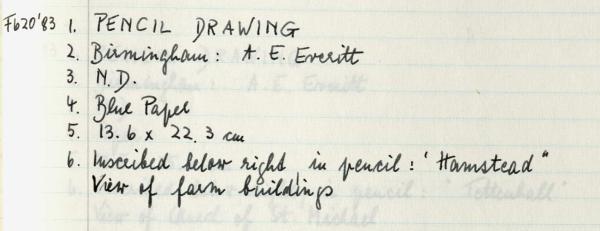 F620'83 1. PENCIL DRAWING
2. Birmingham: A. E. Everitt
3. N.D.
4. Blue Paper
5. 13.6 x 22.3 cm
6. Inscribed below right, in pencil: 'Hamstead"
View of farm buildings